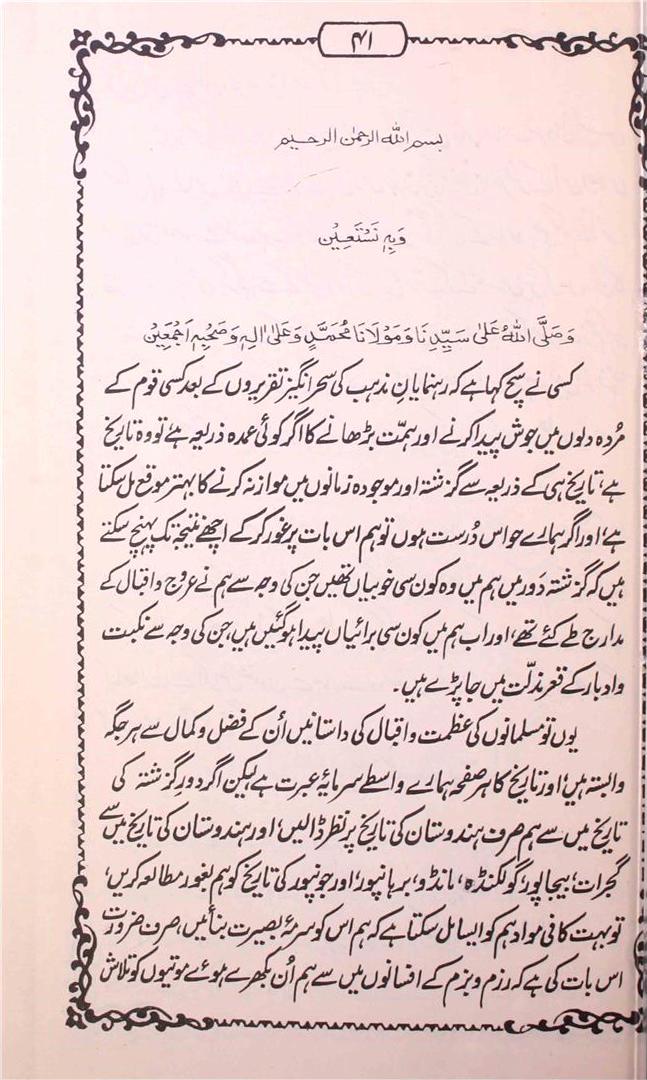 ۴۱
بسم الله الرحمٰن الرحيم
وَبِهٖ نَسْتَعِيْن
وَصَلَّى اللّٰهُ عَلٰى سَيِّدِنَا وَمَوْلَانَا مُحَمَّدٍ وَّعَلٰى اٰلِهٖ وَصَحْبِهٖ اَجْمَعِيْن
کسی نے سچ کہا ہے کہ رہنمایانِ مذہب کی سحر انگیز تقریروں کے بعد کسی قوم کے
مُردہ دلوں میں جوش پیدا کرنے اور ہمّت بڑھانے کا اگر کوئی عمدہ ذریعہ ہے تو وہ تاریخ
ہے، تاریخ ہی کے ذریعہ سے گزشتہ اور موجودہ زمانوں میں موازنہ کرنے کا بہتر موقع مل سکتا
ہے، اور اگر ہمارے حواس دُرست ہوں تو ہم اس بات پر غور کرکے اچھے نتیجہ تک پہنچ سکتے
ہیں کہ گزشتہ دَور میں ہم میں وہ کون سی خوبیاں تھیں جن کی وجہ سے ہم نے عروج و اقبال کے
مدارج طے کئے تھے، اور اب ہم میں کون سی برائیاں پیدا ہوگئیں ہیں، جن کی وجہ سے نکبت
وادبار کے قعرِ مذلّت میں جا پڑے ہیں۔
یوں تو مسلمانوں کی عظمت و اقبال کی داستانیں اُن کے فضل و کمال سے ہر جگہ
وابستہ ہیں، اور تاریخ کا ہر صفحہ ہمارے واسطے سرمایۂ عبرت ہے لیکن اگر دورِ گزشتہ کی
تاریخ میں سے ہم صرف ہندوستان کی تاریخ پر نظر ڈالیں، اور ہندوستان کی تاریخ میں سے
گجرات، بیجاپور، گولکنڈہ، مانڈو، برہانپور، اور جونپور کی تاریخ کو ہم بغور مطالعہ کریں،
تو بہت کافی مواد ہم کو ایسا مل سکتا ہے کہ ہم اس کو سرمۂ بصیرت بنائیں، صرف ضرورت
اس بات کی ہے کہ رزم و بزم کے افسانوں میں سے ہم اُن بکھرے ہوئے موتیوں کو تلاش